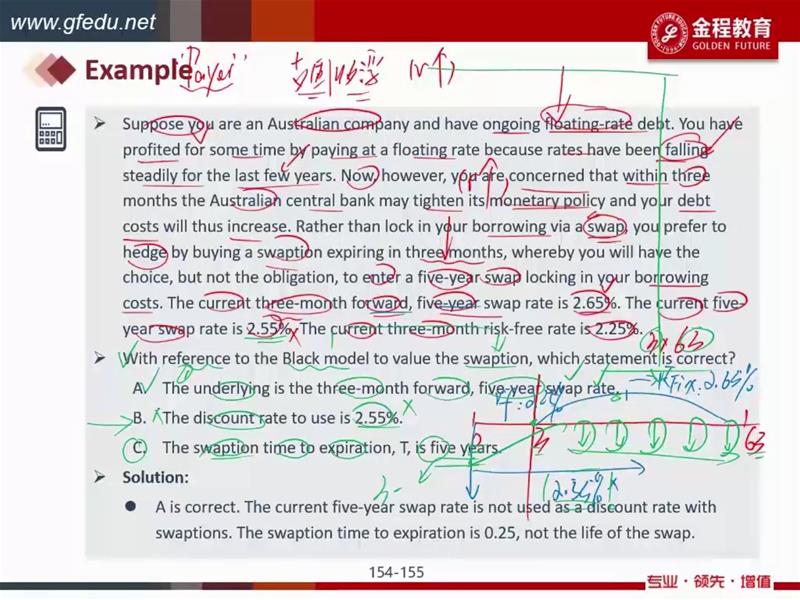 www.gfedu.net
金程教育
GOLDEN FUTURE
Example
"Payer"
Suppose you are an Australian company and have ongoing floating-rate debt. You have
profited for some time by paying at a floating rate because rates have been falling
steadily for the last few years. Now, however, you are concerned that within three
months the Australian central bank may tighten its monetary policy and your debt
costs will thus increase. Rather than lock in your borrowing via a swap, you prefer to
hedge by buying a swaption expiring in three months, whereby you will have the
choice, but not the obligation, to enter a five-year swap locking in your borrowing
costs. The current three-month forward, five-year swap rate is 2.65%. The current five-
year swap rate is 2.55%. The current three-month risk-free rate is 2.25%.
3×63
With reference to the Black model to value the swaption, which statement is correct?
A. The underlying is the three-month forward, five-year swap rate.
B. The discount rate to use is 2.55%.
C. The swaption time to expiration, T, is five years.
Solution:
A is correct. The current five-year swap rate is not used as a discount rate with
swaptions. The swaption time to expiration is 0.25, not the life of the swap.
154-155
专业·领先·增值